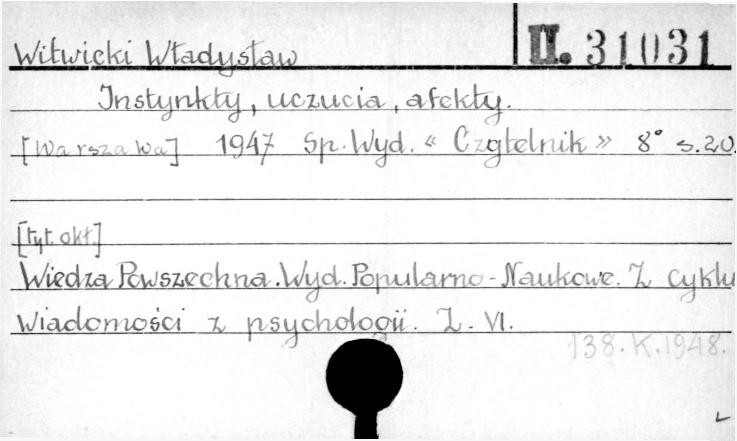 II. 31031
Witwicki Władysław
Instynkty, uczucia, afekty.
[Warszawa] 1947 Sp. Wyd. « Czytelnik » 8° s.20.
[tyt. okł.]
Wiedza Powszechna. Wyd. Popularno-Naukowe. Z cyklu
Wiadomości z psychologii. Z. VI.
138.K.1948.